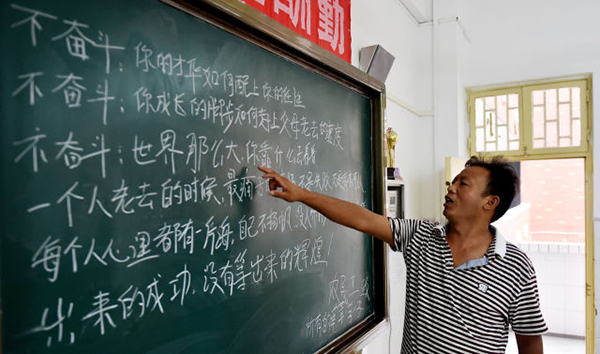 酬勤
不奋斗:你的才华如何配上你的任性
不奋斗:你成长的脚步如何赶上父母老去的速度
不奋斗:世界那么大,你靠什么去看看
一个人老去的时候,最痛
每个人心里都有一片海,自己不扬帆,没
出来的成功,没有等出来的辉煌!